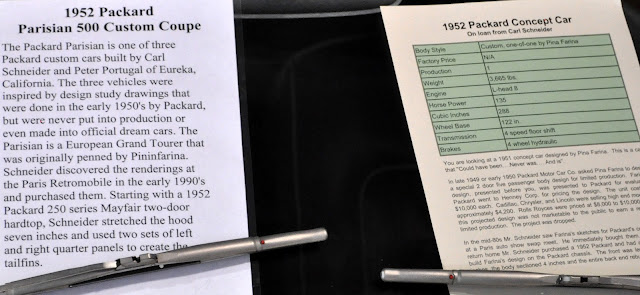 1952 Packard
Parisian 500 Custom Coupe
The Packard Parisian is one of three
Packard custom cars built by Carl
Schneider and Peter Portugal of Eureka,
California. The three vehicles were
inspired by design study drawings that
were done in the early 1950's by Packard,
but were never put into production or
even made into official dream cars. The
Parisian is a European Grand Tourer that
was originally penned by Pininfarina.
Schneider discovered the renderings at
the Paris Retromobile in the early 1990's
and purchased them. Starting with a 1952
Packard 250 series Mayfair two-door
hardtop, Schneider stretched the hood
seven inches and used two sets of left
and right quarter panels to create the
tailfins.
1952 Packard Concept Car
On loan from Carl Schneider
Body Style Custom, one-of-one by Pina Farina
Factory Price N/A
Production 1
Weight 3,665 lbs.
Engine L-head 8
Horse Power 135
Cubic Inches 288
Wheel Base 122 in.
Transmission 4 speed floor shift
Brakes 4 wheel hydraulic
You are looking at a 1951 concept car designed by Pina Farina. This is a
that "Could have been... Never was.... And is".
In late 1949 or early 1950 Packard Motor Car Co. asked Pina Farina to
a special 2 door five passenger body design for limited production.
design, presented before you, was presented to Packard for
Packard went to Henney Corp. for pricing the design. The unit
$10,000 each. Cadillac, Chrysler, and Lincoln were selling high end
approximately $4,200. Rolls Royces were priced at $8,000 to
this projected design was not marketable to the public to earn a
limited production. The project was dropped.
In the mid-80s Mr. Schneider saw Farina's sketches for Packard's
at a Paris auto show swap meet. He immediately bought them.
return home Mr. Schneider purchased a 1952 Packard and had
build Farina's design on the Packard chassis. The front was
the body sectioned 4 inches and the entire back end